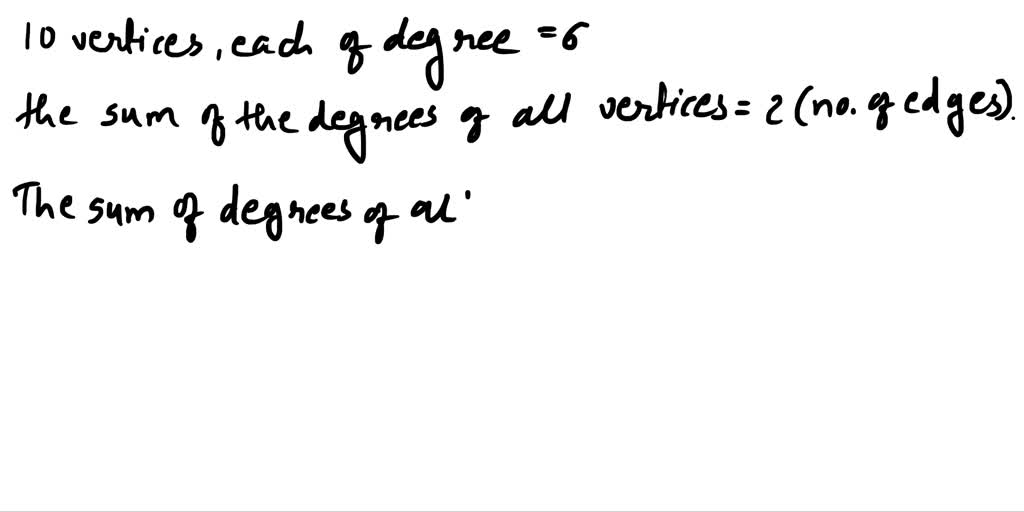 10 vertices, each of degree = 6
the sum of the degrees of all vertices = 2 (no. of edges).
The sum of degrees of al